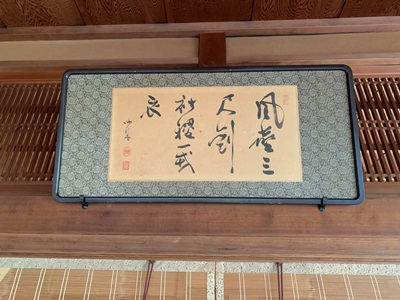 風塵三
尺剣
社稷一戎
衣